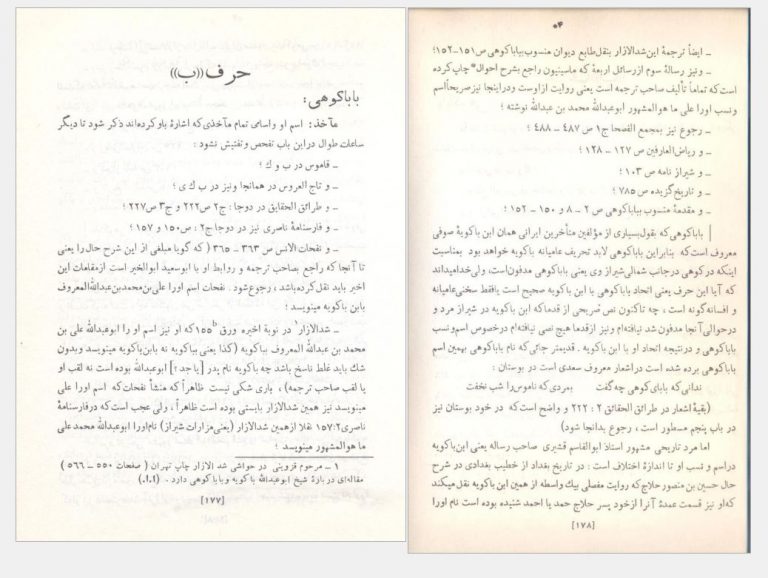 حرف «ب»
باباکوهی:
مآخذ: اسم او واسامی تمام مآخذی که اشارهٔ باو کرده‌اند ذکر شود تا دیگر
ساعات طوال در این باب تفحص وتفتیش نشود :
ـ قاموس در ب و ك ؛
ـ و تاج العروس در همانجا ونیز در ب ك ی ؛
ـ و طرائق الحقایق در دوجا : ج۲ ص۲۲۲ و ج۳ ص۲۲۷
ـ و فارسنامهٔ ناصری نیز در دوجا ج۲ : ص۱۵۰ و ۱۵۷ ؛
ـ و نفحات الانس ص ۳۶۳ ـ ۳۶۵ ( که گویا مبلغی از این شرح حال را یعنی
تا آنجا که راجع بصاحب ترجمه و روابط او با ابوسعید ابوالخیر است ازمقامات این
اخیر باید نقل کرده‌باشد ، رجوع‌شود . نفحات اسم اورا علی‌بن‌محمدبن‌عبدالله‌المعروف
بابن باکویه مینویسد ؛
ـ شدالازار۱ در نوبهٔ اخیره ورق ۱۵۵b که او نیز اسم او را ابوعبدالله علی بن
محمد بن عبدالله المعروف بباکویه (کذا یعنی بباکویه نه بابن‌باکویه مینویسد وبدون
شك باید غلط ناسخ باشد چه باکویه نام پدر [ یا جد؟] ابوعبدالله بوده است نه لقب او
یا لقب صاحب ترجمه) ، باری شکی نیست ظاهراً که منشأ نفحات که اسم اورا علی
مینویسد نیز همین شدالازار بایستی بوده است ظاهراً ، ولی عجب است که درفارسنامهٔ
ناصری۱۵۷:۲ نقلا ازهمین شدالازار (یعنی‌مزارات شیراز) نام‌اورا ابوعبدالله محمد علی
ما هوالمشهور مینویسد ؛
۱ ـ مرحوم قزوینی در حواشی شد الازار چاپ تهران ( صفحات ۵۵۰ ـ ۵۶۶ )
مقاله‌ای در بارهٔ شیخ ابوعبدالله باکویه وباباکوهی دارد . (ا.ا.)
[۱۷۷]
ـ ایضاً ترجمهٔ این شدالازار بنقل‌طابع دیوان منسوب‌بباباکوهی ص ۱۵۱-۱۵۲ ؛
ـ ونیز رسالهٔ سوم ازرسائل اربعهٔ که ماسینیون راجع بشرح احوال چاپ کرده
است که تماماً تألیف صاحب ترجمه است یعنی روایت از اوست ودراینجا نیزصریحاً‌اسم
ونسب اورا علی ما هوالمشهور ابوعبدالله محمد بن عبدالله نوشته ؛
ـ رجوع نیز بمجمع الفصحا ج۱ ص ۴۸۷ ـ ۴۸۸ ؛
ـ و ریاض‌العارفین ص ۱۲۷ ـ ۱۲۸ ؛
ـ و شیراز نامه ص ۱۰۳ ؛
ـ و تاریخ‌گزیده ص ۷۸۵ ؛
ـ و مقدمهٔ منسوب بباباکوهی ص ۲ ـ ۸ و ۱۵۰ ـ ۱۵۲ ؛
باباکوهی‌که بقول‌بسیاری از مؤلفین متأخرین ایرانی همان ابن باکویهٔ صوفی
معروف است که بنابراین باباکوهی لابد تحریف عامیانه باکویه خواهد بود بمناسبت
اینکه درکوهی درجانب شمالی‌شیراز وی یعنی باباکوهی مدفون‌است، ولی‌خدامیداند
که آیا این حرف یعنی اتحاد باباکوهی با ابن باکویه صحیح است یافقط سخنی‌عامیانه
و افسانه‌گونه است ، چه تاکنون نص صریحی از قدما که ابن باکویه در شیراز مرد و
درحوالی آنجا مدفون شد نیافته‌ام ونیز ازقدما هیچ نصی نیافته‌ام درخصوص اسم‌ونسب
باباکوهی و درنتیجه اتحاد او با ابن باکویه . قدیمتر جائی که نام باباکوهی بهمین اسم
باباکوهی برده شده است دراشعار معروف سعدی است در بوستان :
ندانی‌که بابای‌کوهی چه‌گفت بمردی‌که ناموس‌را شب نخفت
(بقیهٔ اشعار در طرائق الحقائق ۲ : ۲۲۲ و واضح است که در خود بوستان نیز
در باب پنجم مسطور است ، رجوع بدانجا شود)
اما مرد تاریخی مشهور استاذ ابوالقاسم قشیری صاحب رساله یعنی ابن‌باکویه
دراسم و نسب او تا اندازهٔ اختلاف است : در تاریخ بغداد از خطیب بغدادی در شرح
حال حسین بن منصور حلاج که روایت مفصلی بیك واسطه از همین ابن باکویه نقل‌میکند
که‌او نیز قسمت عمدهٔ آنرا ازخود پسر حلاج حمد یا احمد شنیده بوده است نام اورا
[۱۷۸]